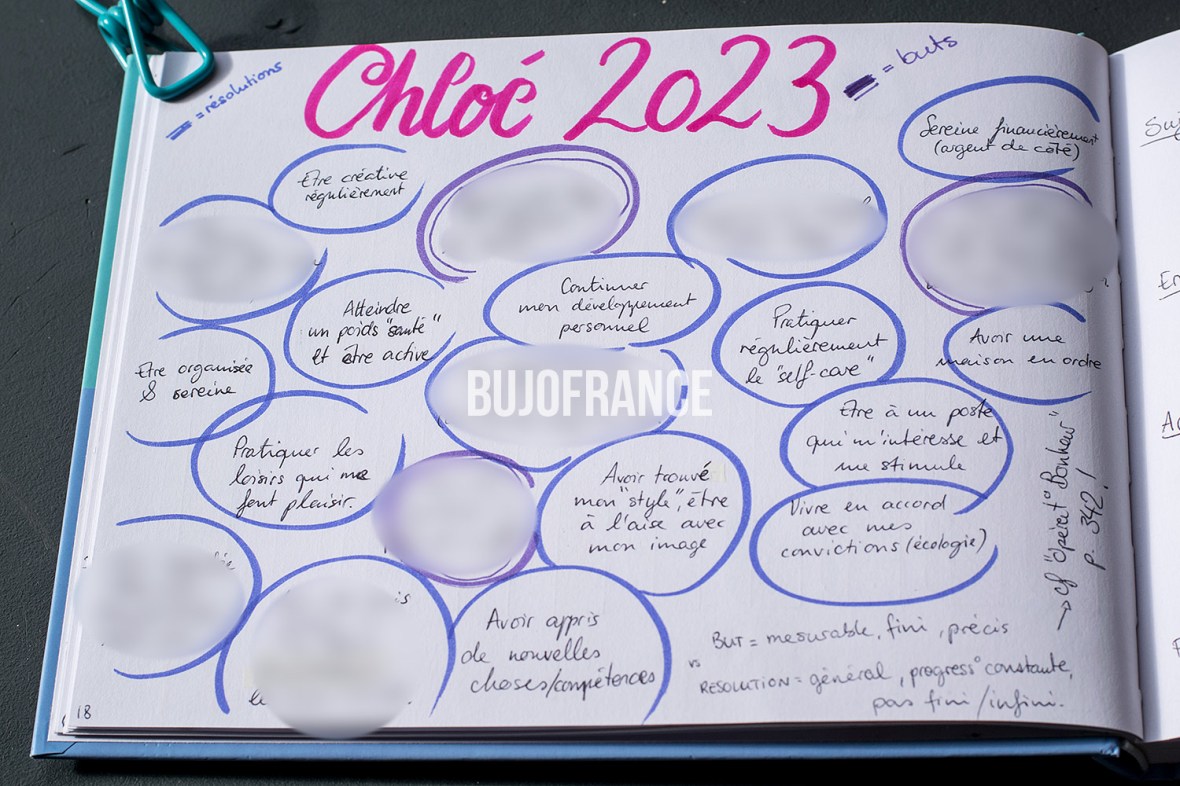 = résolutions
Chloé 2023
= buts
Sereine financièrement
(argent de côté)
Etre créative
régulièrement
Continuer
mon développement
personnel
Atteindre
un poids "santé"
et être active
Pratiquer
régulièrement
le "self-care"
Avoir une
maison en ordre
Etre organisée
& sereine
BUJOFRANCE
Etre à un poste
qui m'intéresse et
me stimule
Pratiquer les
loisirs qui me
font plaisir.
Avoir trouvé
mon "style", être
à l'aise avec
mon image
Vivre en accord
avec mes
convictions (écologie)
→ cf "Opérat° Bonheur"
p. 342!
Avoir appris
de nouvelles
choses/compétences
BUT = mesurable, fini, précis
vs
RESOLUTION = général, progress° constante,
pas fini/infini.
18